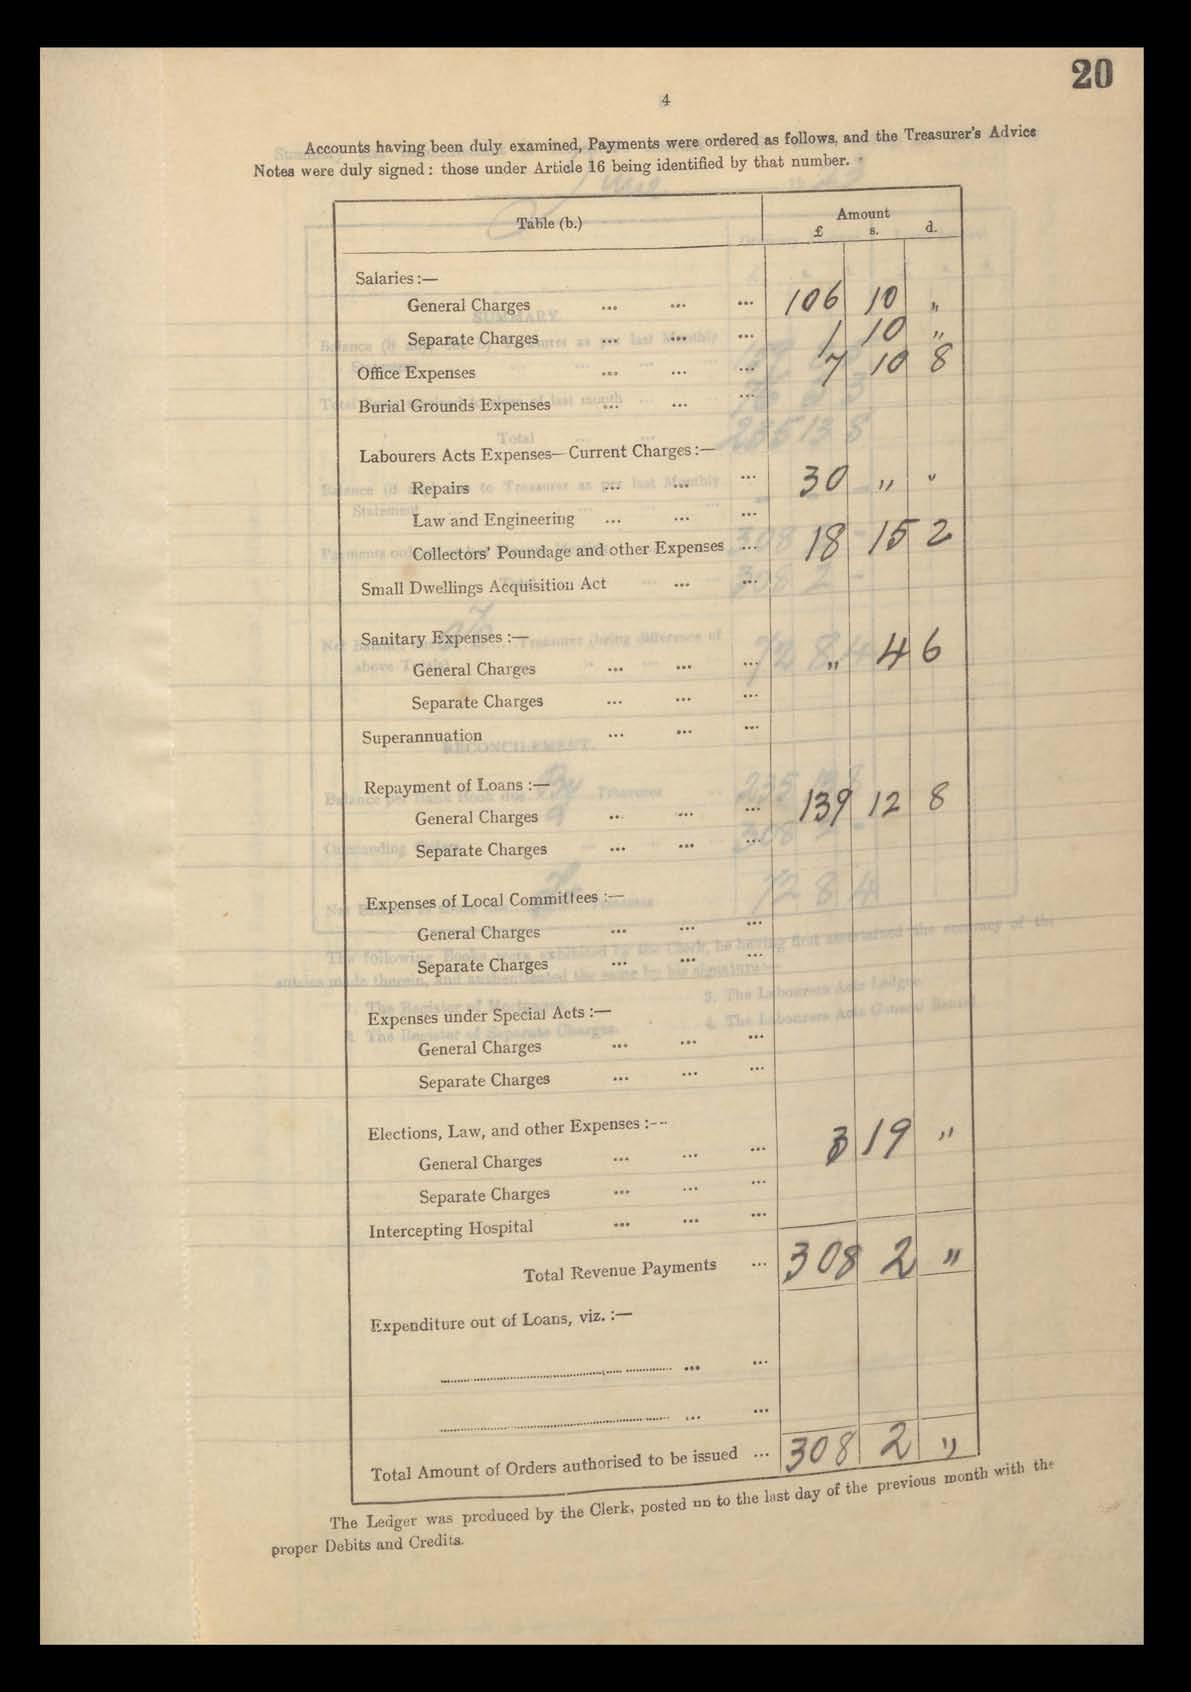 20
4
Accounts having been duly examined, Payments were ordered as follows, and the Treasurer's Advice
Notes were duly signed : those under Article 16 being identified by that number.
Table (b.) Amount
£ s. d.
Salaries :—
General Charges ... ... ... 106 10 „
Separate Charges ... ... ... 1 10 „
Office Expenses ... ... ... 7 10 8
Burial Grounds Expenses ... ... ...
Labourers Acts Expenses—Current Charges :—
Repairs ... ... ... 30 „ „
Law and Engineering ... ... ...
Collectors' Poundage and other Expenses ... 18 15 2
Small Dwellings Acquisition Act ... ...
Sanitary Expenses :—
General Charges ... ... ... „ 4 6
Separate Charges ... ... ...
Superannuation ... ... ...
Repayment of Loans :—
General Charges ... ... ... 139 12 8
Separate Charges ... ... ...
Expenses of Local Committees :—
General Charges ... ... ...
Separate Charges ... ... ...
Expenses under Special Acts :—
General Charges ... ... ...
Separate Charges ... ... ...
Elections, Law, and other Expenses :--
General Charges ... ... ... 3 19 „
Separate Charges ... ... ...
Intercepting Hospital ... ... ...
Total Revenue Payments ... 308 2 „
Expenditure out of Loans, viz. :—
... ...
... ...
Total Amount of Orders authorised to be issued ... 308 2 „
The Ledger was produced by the Clerk, posted up to the last day of the previous month with the
proper Debits and Credits.